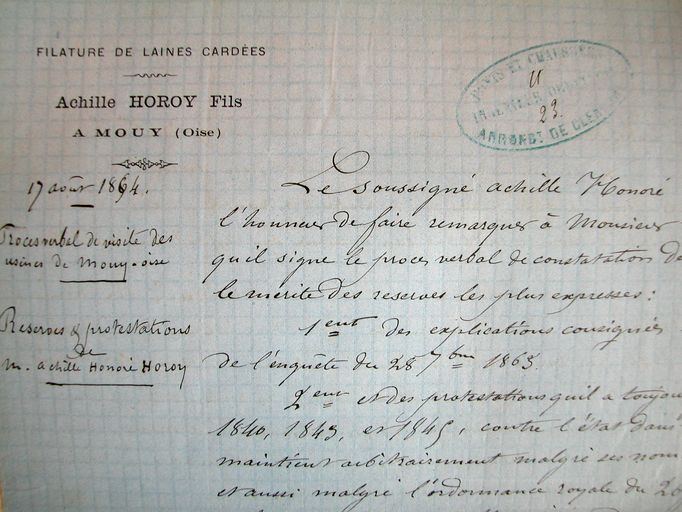 FILATURE DE LAINES CARDÉES
Achille HOROY Fils
A MOUY (Oise)
PONTS ET CHAUSSÉES
11
23.
ARRONDT DE CLER
17 août 1864.
Procès verbal de visite des
usines de Mouy-oise
Reserves & protestations
de
M. achille Honoré Horoy
Le Soussigné achille Honoré
l'honneur de faire remarquer à Monsieur
qu'il signe le procès verbal de constatation de
le mérite des reserves les plus expresses :
1ent des explications consignées
de l'enquête du 28 7bre 1863.
2ent et des protestations qu'il a toujou
1840, 1843, et 1845, contre l'état dans
maintient arbitrairement malgré ses nom
et aussi malgré l'ordonnance royale du 20